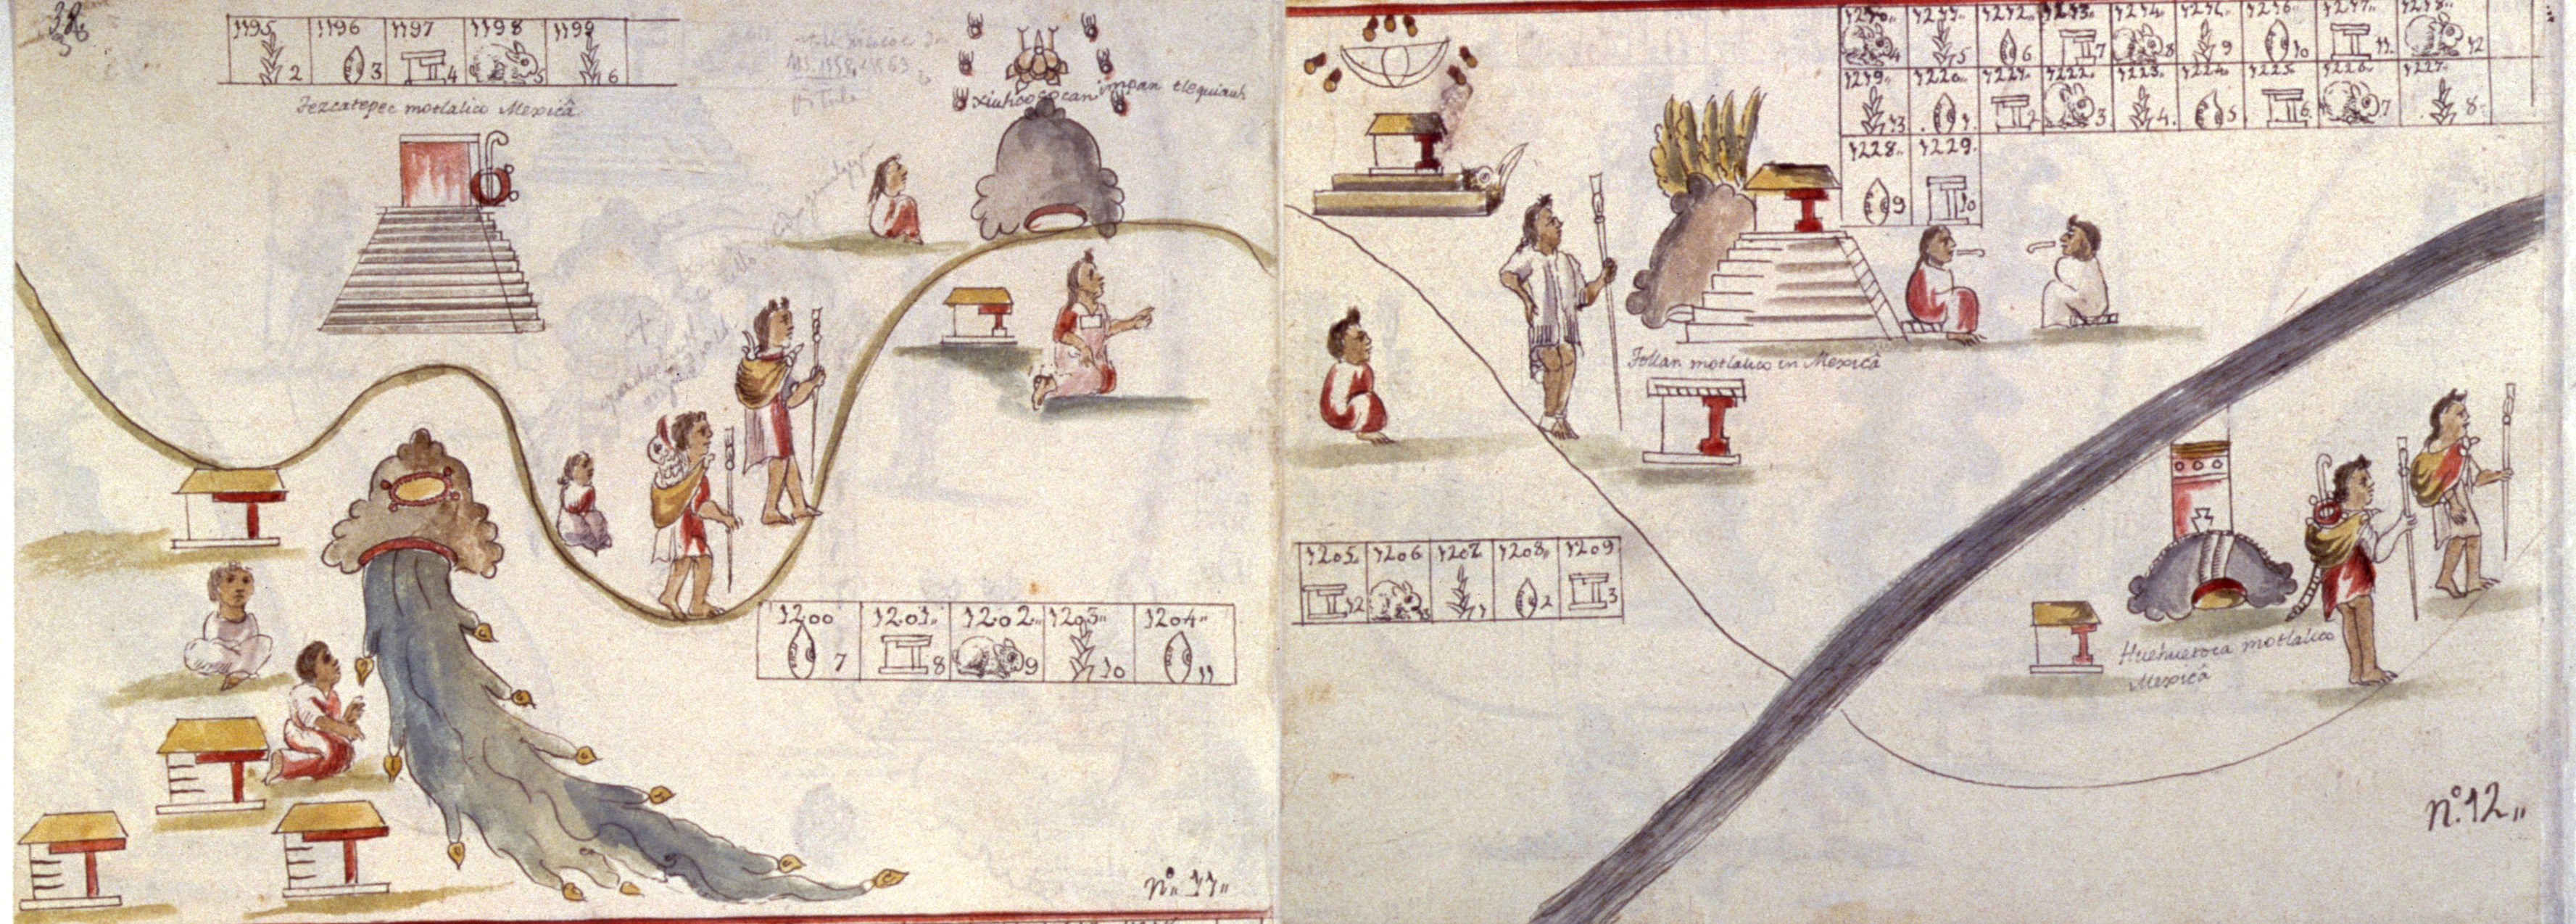 38
1195 1196 1197 1198 1199
2 3 4 5 6
Tezcatepec motlalico Mexicâ
Xiuhcocan impan tlequiauh
1200 1201 1202 1203 1204
7 8 9 10 11
nº 11
1210 1211 1212 1213 1214 1215 1216 1217 1218
4 5 6 7 8 9 10 11 12
1219 1220 1221 1222 1223 1224 1225 1226 1227
13 1 2 3 4 5 6 7 8
1228 1229
9 10
Tollan motlalico in Mexicâ
1205 1206 1207 1208 1209
12 13 1 2 3
Huehuetoca motlalico
Mexicâ
nº.12